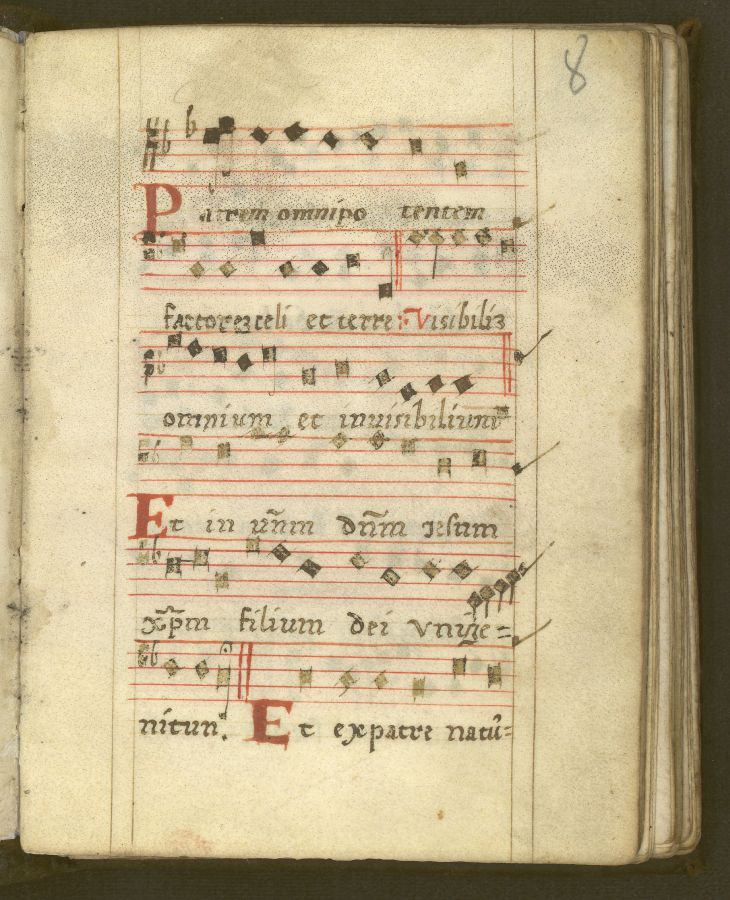 8
Patrem omnipo tentem
factorez celi et terre: Visibiliz
omnium et inuisibilium
Et in un̄m dn̄m iesum
xp̄m filium dei vnige=
nitun. Et ex patre natū=